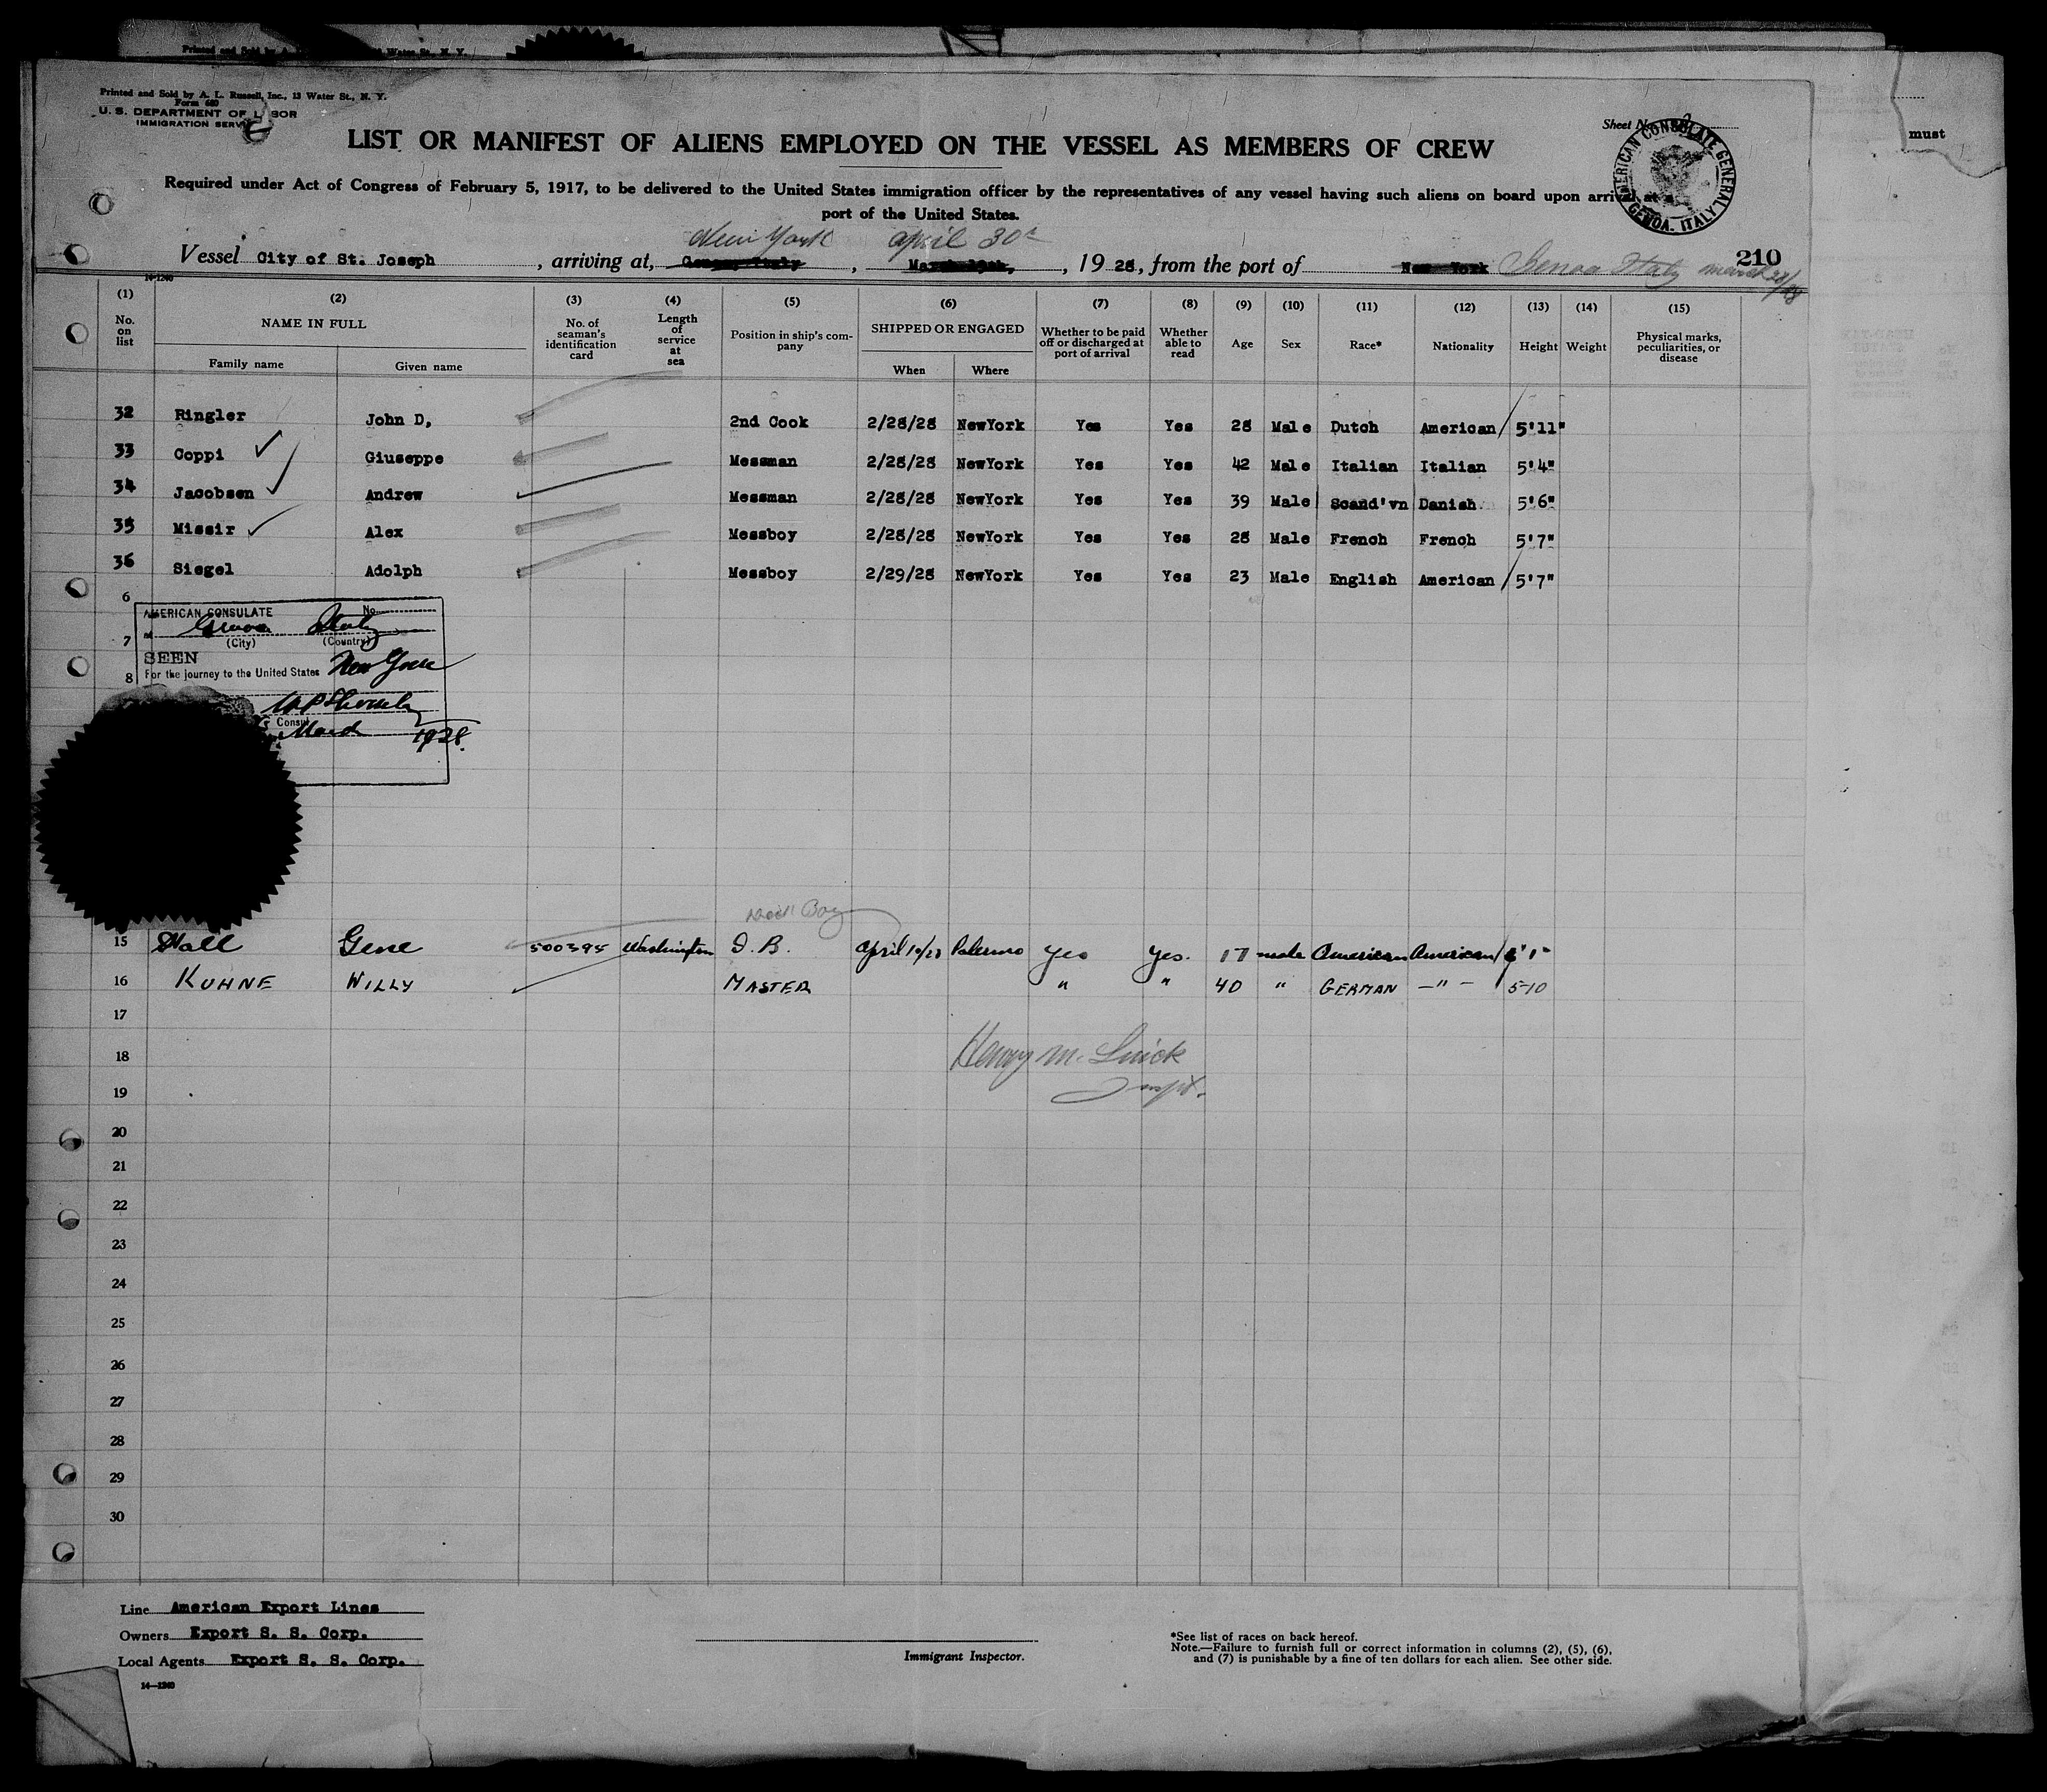 Printed and Sold by A. Water St., N. Y.
Printed and Sold by A. L. Russell, Inc., 13 Water St., N. Y.
Form 680
U. S. DEPARTMENT OF LABOR
IMMIGRATION SERVICE
Sheet No. 2
must
LIST OR MANIFEST OF ALIENS EMPLOYED ON THE VESSEL AS MEMBERS OF CREW
AMERICAN CONSULATE GENERAL GENOA, ITALY
Required under Act of Congress of February 5, 1917, to be delivered to the United States immigration officer by the representatives of any vessel having such aliens on board upon arrival at a
port of the United States.
New York april 30
210
Vessel City of St. Joseph, arriving at, Genoa, Italy, March 19th, , 19 28, from the port of New York Genoa Italy march
14-1240
(1) (2) (3) (4) (5) (6) (7) (8) (9) (10) (11) (12) (13) (14) (15)
No. on list NAME IN FULL No. of seaman's identification card Length of service at sea Position in ship's company SHIPPED OR ENGAGED Whether to be paid off or discharged at port of arrival Whether able to read Age Sex Race* Nationality Height Weight Physical marks, peculiarities, or disease
Family name Given name When Where
32 Ringler John D, 2nd Cook 2/28/28 NewYork Yes Yes 28 Male Dutch American 5'11"
33 Coppi Giuseppe Messman 2/28/28 NewYork Yes Yes 42 Male Italian Italian 5'4"
34 Jacobsen Andrew Messman 2/28/28 NewYork Yes Yes 39 Male Scand'vn Danish 5'6"
35 Missir Alex Messboy 2/28/28 NewYork Yes Yes 28 Male French French 5'7"
36 Siegel Adolph Messboy 2/29/28 NewYork Yes Yes 23 Male English American 5'7"
6
AMERICAN CONSULATE No.
at Genoa Italy
7 (City) (Country)
SEEN
8 For the journey to the United States New York
Consul
March 1928.
Deck Boy
15 Hall Gene 500395 Washington D. B. april 10/28 Palermo yes yes. 17 male American American 6'1"
16 KUHNE WILLY MASTER " " 40 " GERMAN —"— 5-10
17
18 Henry M.
19 Inspt.
20
21
22
23
24
25
26
27
28
29
30
Line American Export Lines
Owners Export S. S. Corp.
Local Agents Export S. S. Corp.
14—1240
Immigrant Inspector.
*See list of races on back hereof.
Note.—Failure to furnish full or correct information in columns (2), (5), (6),
and (7) is punishable by a fine of ten dollars for each alien. See other side.